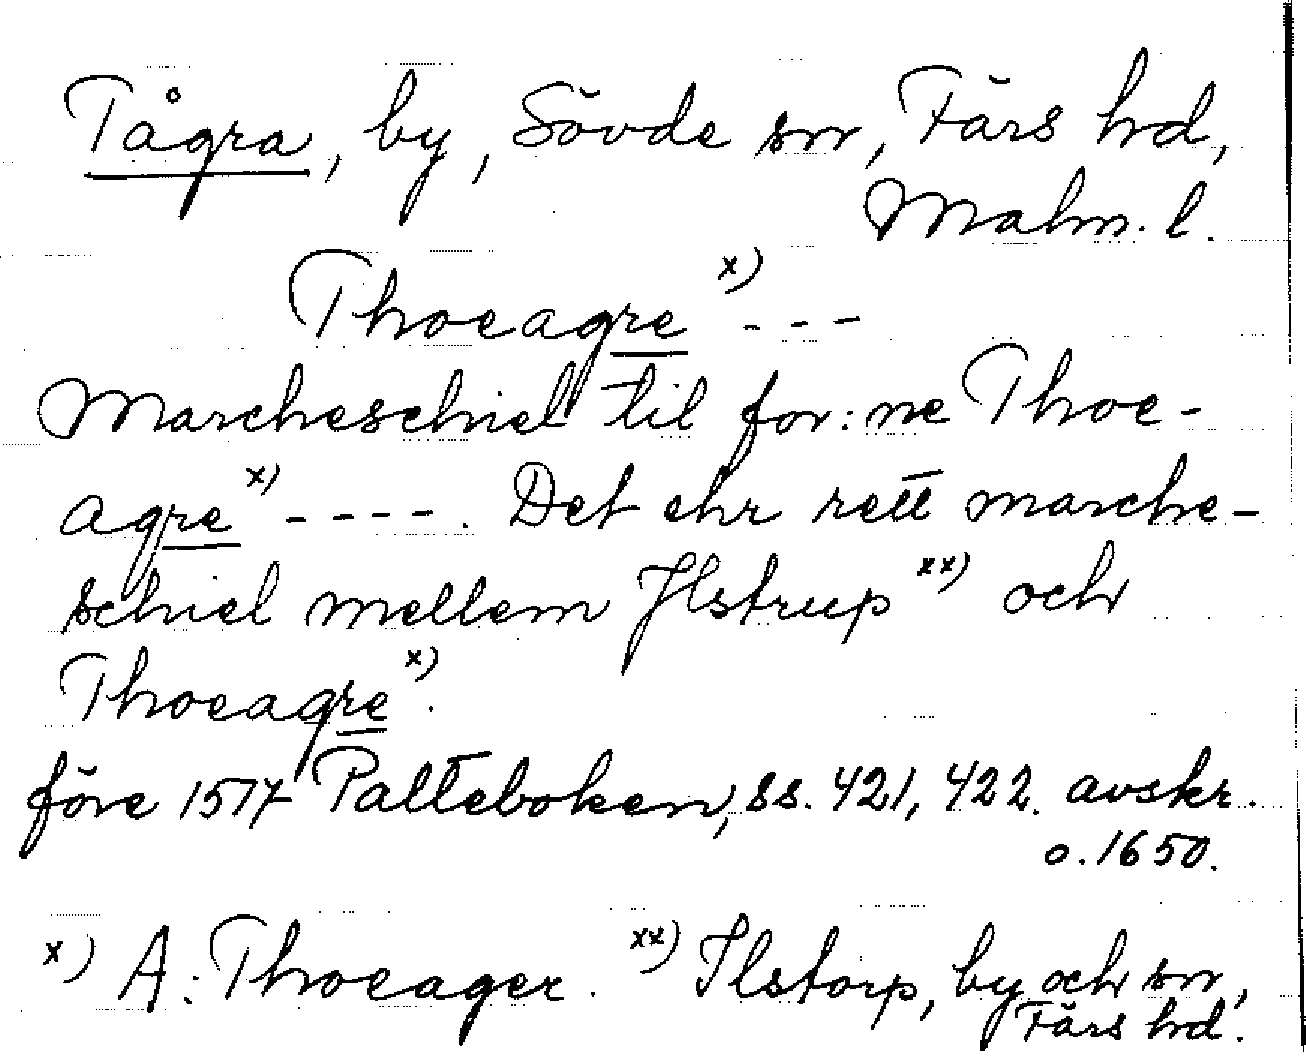 Tågra, by, Sövde sn, Färs hd,
Malm. l.
Thoeagre x) - - -
Marcheschiel til for: ne Thoe-
agre x) - - - - . Det ehr rett marche-
schiel mellem Jlstrup xx) och
Thoeagre x).
före 1517 Palteboken, ss. 421, 422. avskr.
o. 1650.
x) A: Thoeager. xx) Ilstorp, by och sn,
Färs hd.